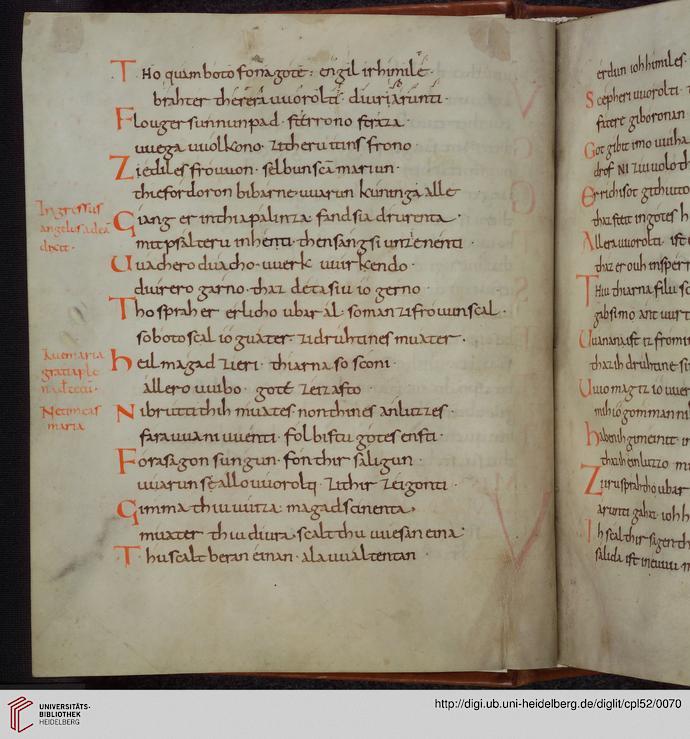 Tho quam boto fona gote · engil ir himile ·
brahter therera uuorolti · diuri arunti ·
Floug er sunnun pad · sterrono straza ·
uuega uuolkono · zi theru itis frono ·
Zi ediles frouuon · selbun sca mariun ·
thie fordoron bi barne · uuarun kuninga alle
Ingressus
angelus ad eā
dixit ·
Giang er in thia palinza · fand sia drurenta ·
mit psalteru in henti · then sang si unz in enti ·
Uuahero duacho · uuerk uuirkendo ·
diurero garno · thaz deta siu io gerno ·
Tho sprah er erlicho ubar al · so man zi frouuun scal ·
so boto scal io guater · zi druhtines muater ·
Aue maria
gratia ple
na
Heil magad zieri · thiarna so sconi ·
allero uuibo · gote zeizasto ·
Ne timeas
maria
Ni brutti thih muates · noh thines anluzzes ·
farauua ni uuenti · fol bistu gotes ensti ·
Forasagon sungun · fon thir saligun
uuarun se allo uuorolti · zi thir zeigonti ·
Gimma thiu uuiza · magad scinenta ·
muater thiu diura · scalt thu uuesan eina ·
Thu scalt beran einan · alauualtentan
erdun ioh himiles ·
Scepheri uuorolti ·
fatere giboronan
Got gibit imo uuiha
drof ni zuiuolo
Er richisot githiuto
thaz steit in gotes
Allera uuorolti · ist
thaz er ouh insperre
Thiu thiarna filu
gab si mo antuurt
Uuanana ist iz fro min
thaz ih druhtine
Uuio mag iz io uuer
mih io gomman ni
Haben ih gimeinit in
thaz ih einluzzo
Zi iru sprah tho ubar
arunti gahaz ioh
Ih scal thir sagen
salida ist in euuu
UNIVERSITÄTS-
BIBLIOTHEK
HEIDELBERG
http://digi.ub.uni-heidelberg.de/diglit/cpl52/0070